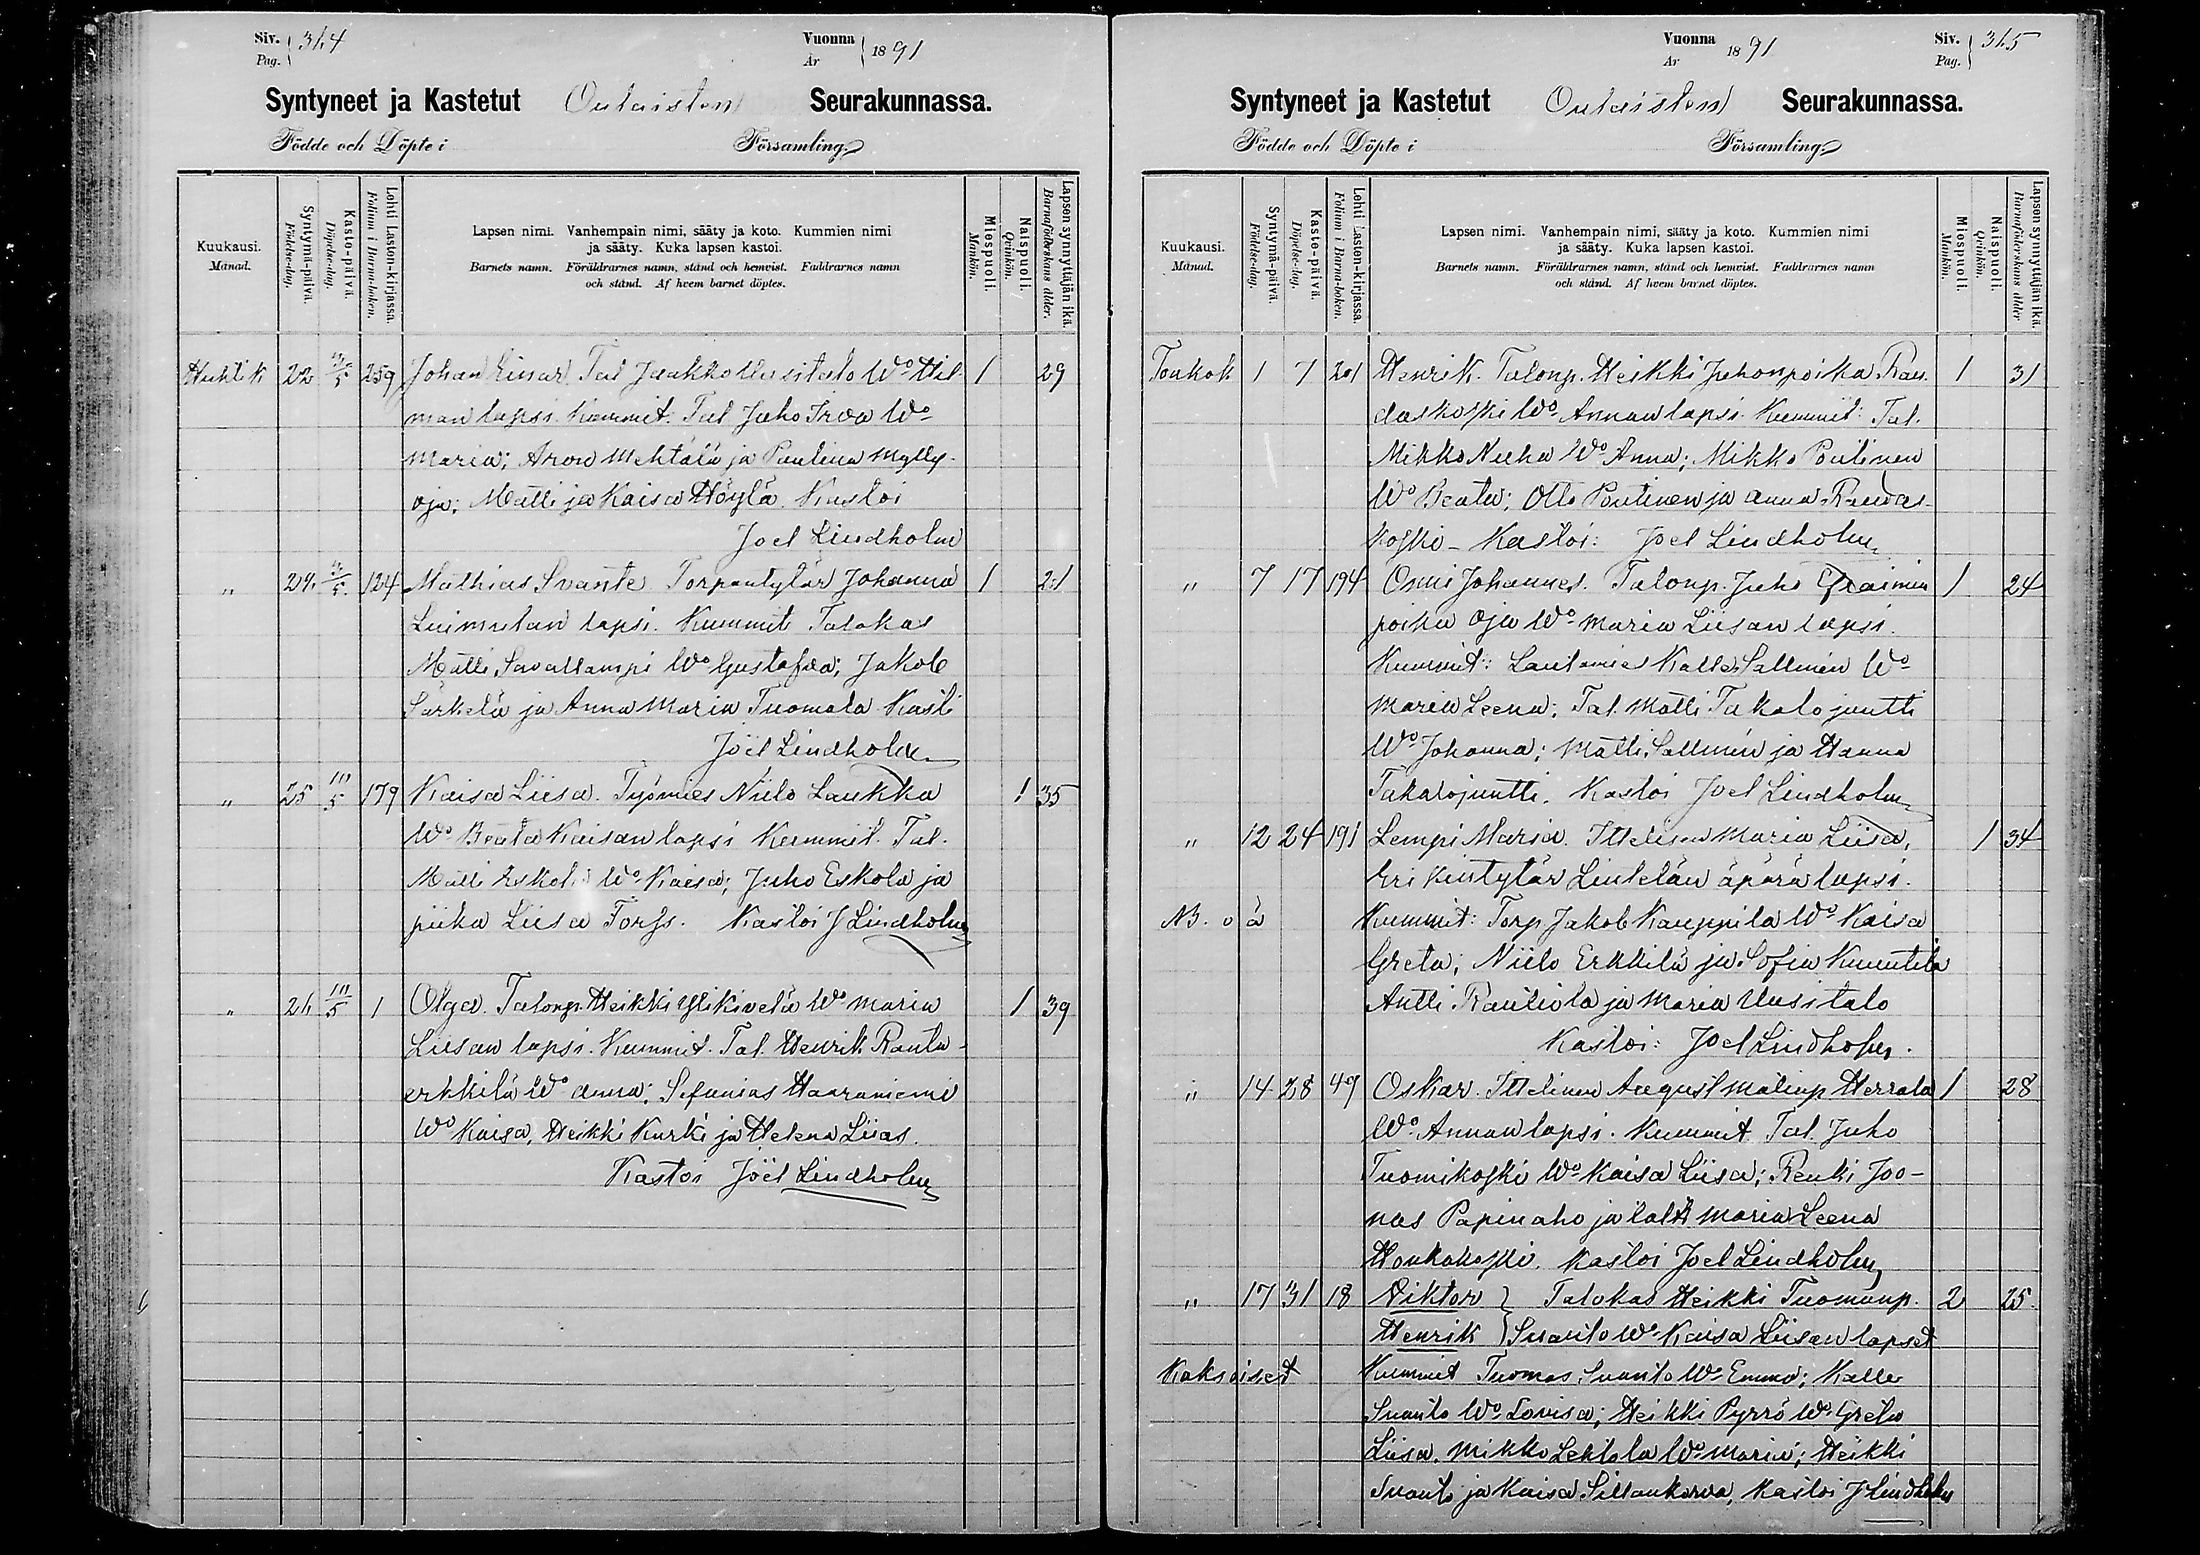 Siv. 314 Vuonna 1891
Pag. År
Syntyneet ja Kastetut Oulaisten Seurakunnassa.
Födde och Döpte i Församling.
Kuukausi. Månad.
Syntymä-päivä. Födelse-dag.
Kasto-päivä. Döpelse-dag.
Lehti Lasten-kirjassa. Folium i Barna-boken.
Lapsen nimi. Vanhempain nimi, sääty ja koto. Kummien nimi
ja sääty. Kuka lapsen kastoi.
Barnets namn. Föräldrarnes namn, stånd och hemvist. Faddrarnes namn
och stånd. Af hvem barnet döptes.
Miespuoli. Mankön.
Naispuoli. Qvinkön.
Lapsen synnyttäjän ikä. Barnaföderskans ålder.
Huhtik 22 259 Johan Einar. Tal Jaakko Uusitalo Wo Hil 1 29
man lapsi. Kummit: Tal Juho Irwa Wo
Maria; Aron Mehtälä ja Paulina Mylly-
oja; Matti ja Kaisa Höylä. Kastoi
Joel Lindholm
„ 24 124 Mathias Svante Torpantytär Johanna 1 21
Luimulan lapsi. Kummit Talokas
Matti Savallampi Wo Gustafwa; Jakob
Särkelä ja Anna Maria Tuomala Kasti
Joel Lindholm
„ 25 10/5 179 Kaisa Liisa. Työmies Niilo Laukka 1 35
Wo Beata Kaisan lapsi Kummit. Tal.
Matti Eskola Wo Kaisa; Juho Eskola ja
piika Liisa Forss. Kastoi J Lindholm
„ 26 10/5 1 Olga. Talonp. Heikki Ylikivelä Wo Maria 1 39
Liisan lapsi. Kummit. Tal. Henrik Ranta-
erkkilä Wo Anna; Sefanias Haaraniemi
Wo Kaisa, Heikki Kurki ja Helena Liias.
Kastoi Joel Lindholm
Vuonna 1891 Siv. 315
År Pag.
Syntyneet ja Kastetut Oulaisten Seurakunnassa.
Födde och Döpte i Församling.
Kuukausi. Månad.
Syntymä-päivä. Födelse-dag.
Kasto-päivä. Döpelse-dag.
Lehti Lasten-kirjassa. Folium i Barna-boken.
Lapsen nimi. Vanhempain nimi, sääty ja koto. Kummien nimi
ja sääty. Kuka lapsen kastoi.
Barnets namn. Föräldrarnes namn, stånd och hemvist. Faddrarnes namn
och stånd. Af hvem barnet döptes.
Miespuoli. Mankön.
Naispuoli. Qvinkön.
Lapsen synnyttäjän ikä. Barnaföderskans ålder
Toukok 1 7 201 Henrik. Talonp. Heikki Juhonpoika Rau- 1 31
daskoski Wo Annan lapsi. Kummit: Tal.
Mikko Neeha Wo Anna; Mikko Poutinen
Wo Beata; Otto Poutinen ja Anna Raudas-
koski - Kastoi: Joel Lindholm
„ 7 17 194 Onni Johannes. Talonp. Juho Efraimin 1 24
poika Oja Wo Maria Liisan lapsi.
Kummit: Lautamies Kalle Sallmén Wo
Maria Leena; Tal. Matti Takalojuntti
Wo Johanna; Matti Sallmén ja Hanna
Takalojuntti. Kastoi Joel Lindholm
„ 12 24 191 Lempi Maria. Ittelisen Maria Liisa, 1 34
Erikintytär Lintelän äpärä lapsi.
NB. o ä Kummit: Torp Jakob Kauppila Wo Kaisa
Greta; Niilo Erkkilä ja Sofia Kuuntila
Antti Rautiola ja Maria Uusitalo
Kastoi: Joel Lindholm.
„ 14 28 49 Oskar. Ittelinen August Matinp Herrala 1 28
Wo Annan lapsi. Kummit Tal. Juho
Tuomikoski Wo Kaisa Liisa; Renki Joo-
nas Papinaho ja Maria Leena
Honkakoski. Kastoi Joel Lindholm
„ 17 31 18 Viktor } Talokas Heikki Tuomanp. 2 25
Henrik } Suanto Wo Kaisa Liisan lapset
Kaksoiset Kummit Tuomas Suanto Wo Emma; Kalle
Suanto Wo Lovisa; Heikki Pyrrö Wo Greta
Liisa, Mikko Lehtola Wo Maria; Heikki
Suanto ja Kaisa Sillankorva, Kastoi J Lindholm